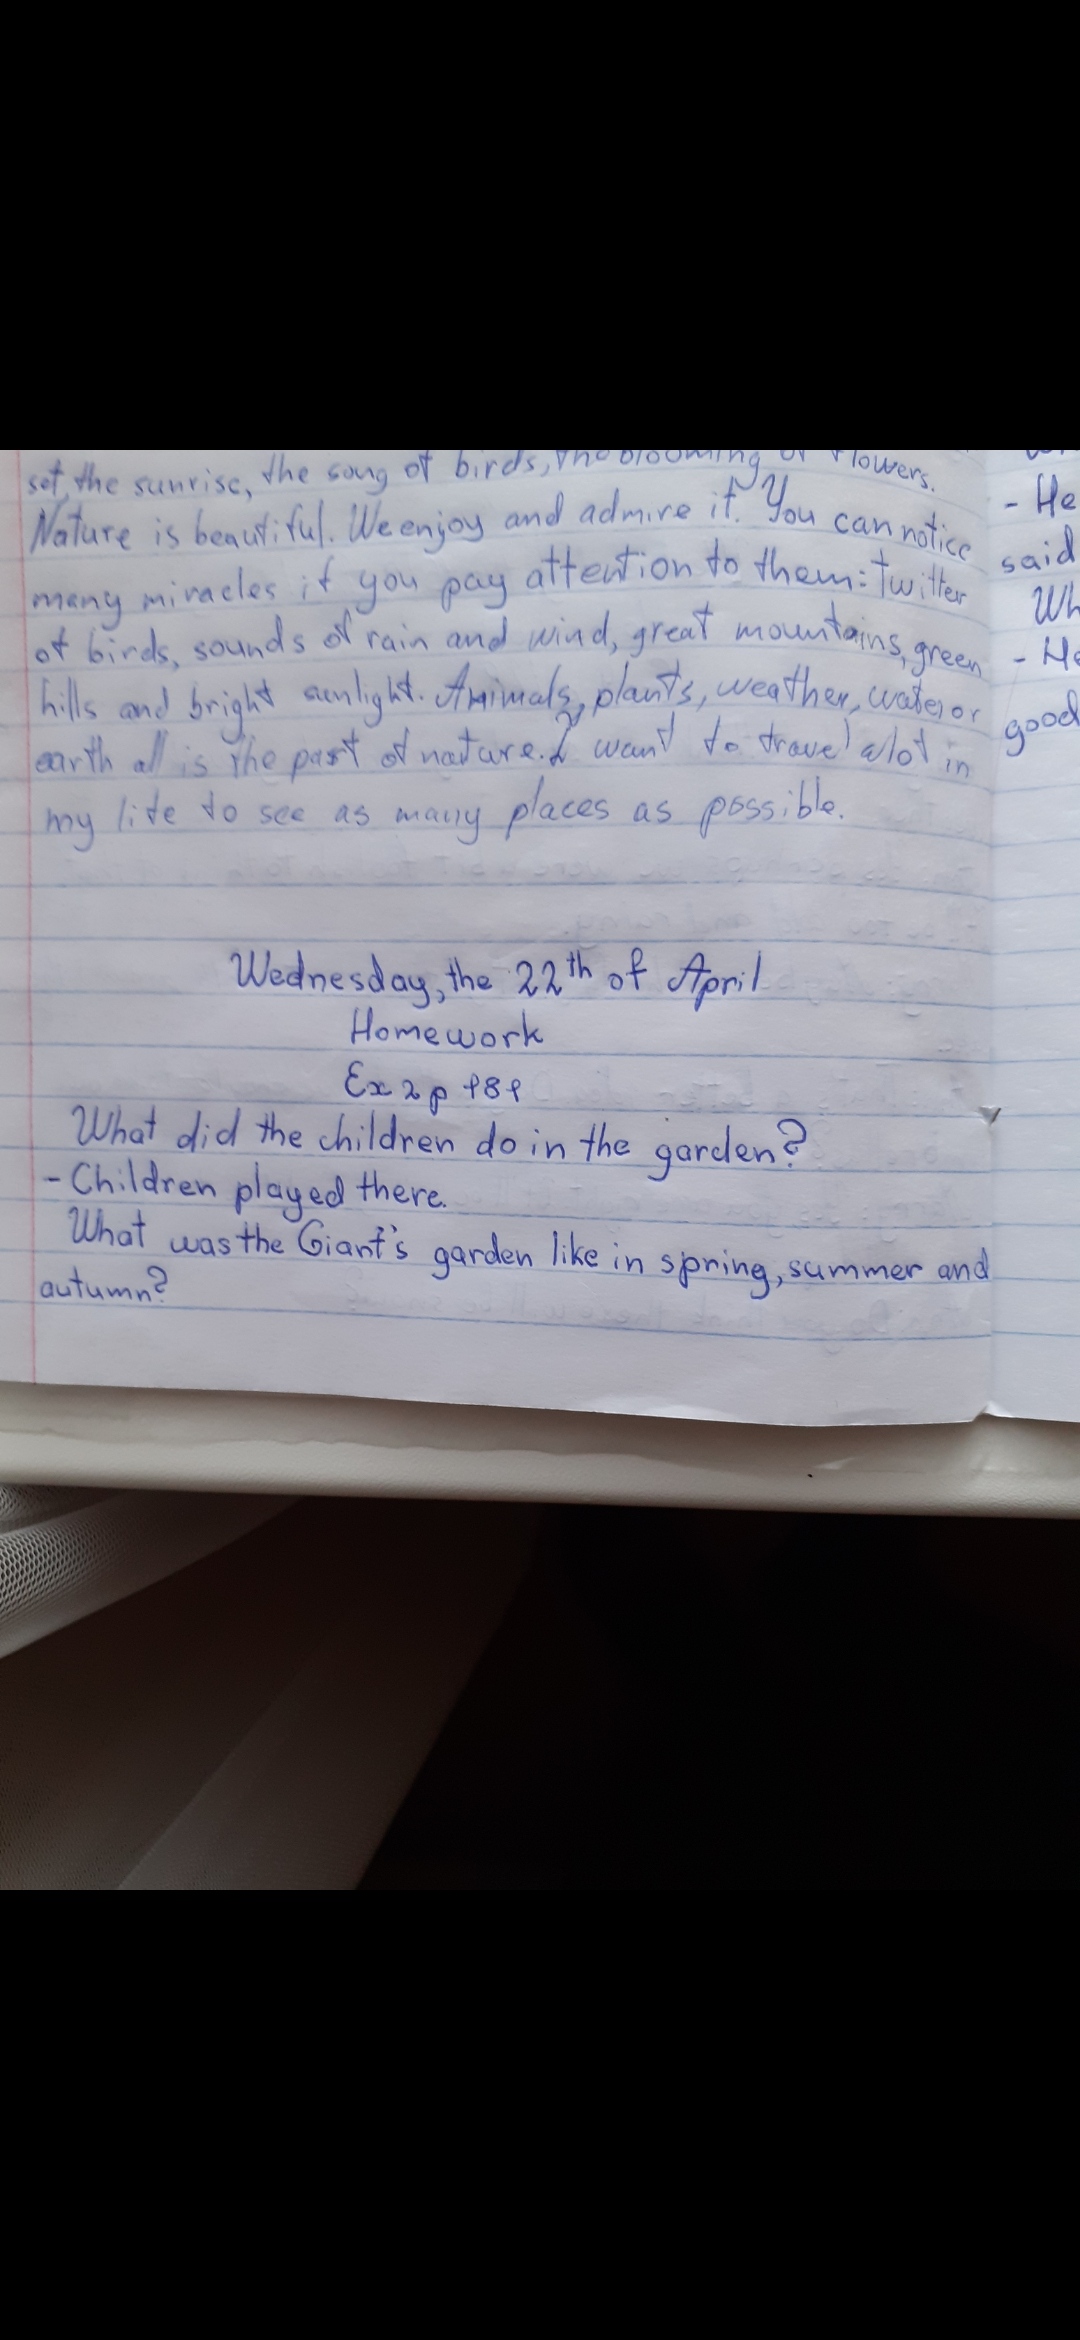 set, the sunrise, the song of birds, the blooming of flowers.
Nature is beautiful. We enjoy and admire it. You can notice
many miracles if you pay attention to them: twitter
of birds, sounds of rain and wind, great mountains, green
hills and bright sunlight. Animals, plants, weather, water or
earth all is the part of nature. I want to travel alot in
my life to see as many places as possible.
Wednesday, the 22th of April
Homework
Ex 2 p 181
What did the children do in the garden?
- Children played there.
What was the Giant's garden like in spring, summer and
autumn?
- He
said
Wh
- He
good